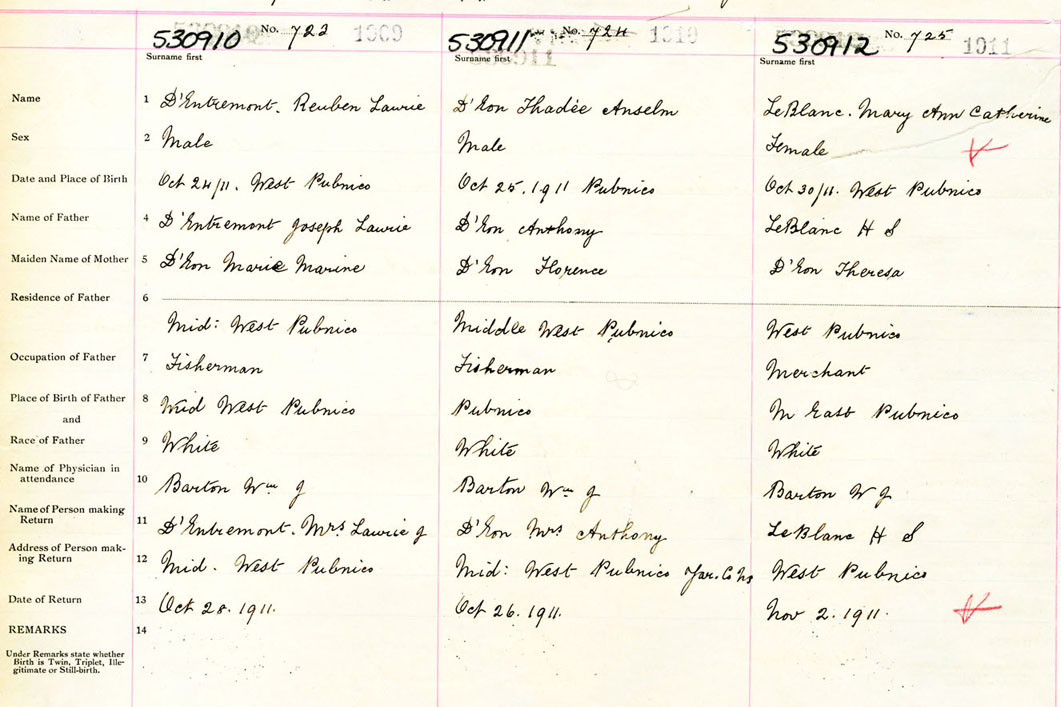 530910 No. 723 1009 530911 No. 724 1010 530912 No. 725 1011
Surname first Surname first Surname first
Name 1 D'Entremont. Reuben Lawrie D'Eon Thadée Anselm LeBlanc. Mary Ann Catherine
Sex 2 Male Male Female
Date and Place of Birth Oct 24/11. West Pubnico Oct 25. 1911 Pubnico Oct 30/11. West Pubnico
Name of Father 4 D'Entremont Joseph Lawrie D'Eon Anthony LeBlanc H S
Maiden Name of Mother 5 D'Eon Marie Marine D'Eon Florence D'Eon Theresa
Residence of Father 6
Mid: West Pubnico Middle West Pubnico West Pubnico
Occupation of Father 7 Fisherman Fisherman Merchant
Place of Birth of Father 8 Mid West Pubnico Pubnico M East Pubnico
and
Race of Father 9 White White White
Name of Physician in
attendance 10 Barton Wm J Barton Wm J Barton W J
Name of Person making
Return 11 D'Entremont. Mrs Lawrie J D'Eon Mrs Anthony LeBlanc H S
Address of Person mak-
ing Return 12 Mid. West Pubnico Mid: West Pubnico Yar. Co Ns West Pubnico
Date of Return 13 Oct 28. 1911. Oct 26. 1911. Nov 2. 1911.
REMARKS 14
Under Remarks state whether
Birth is Twin, Triplet, Ille-
gitimate or Still-birth.